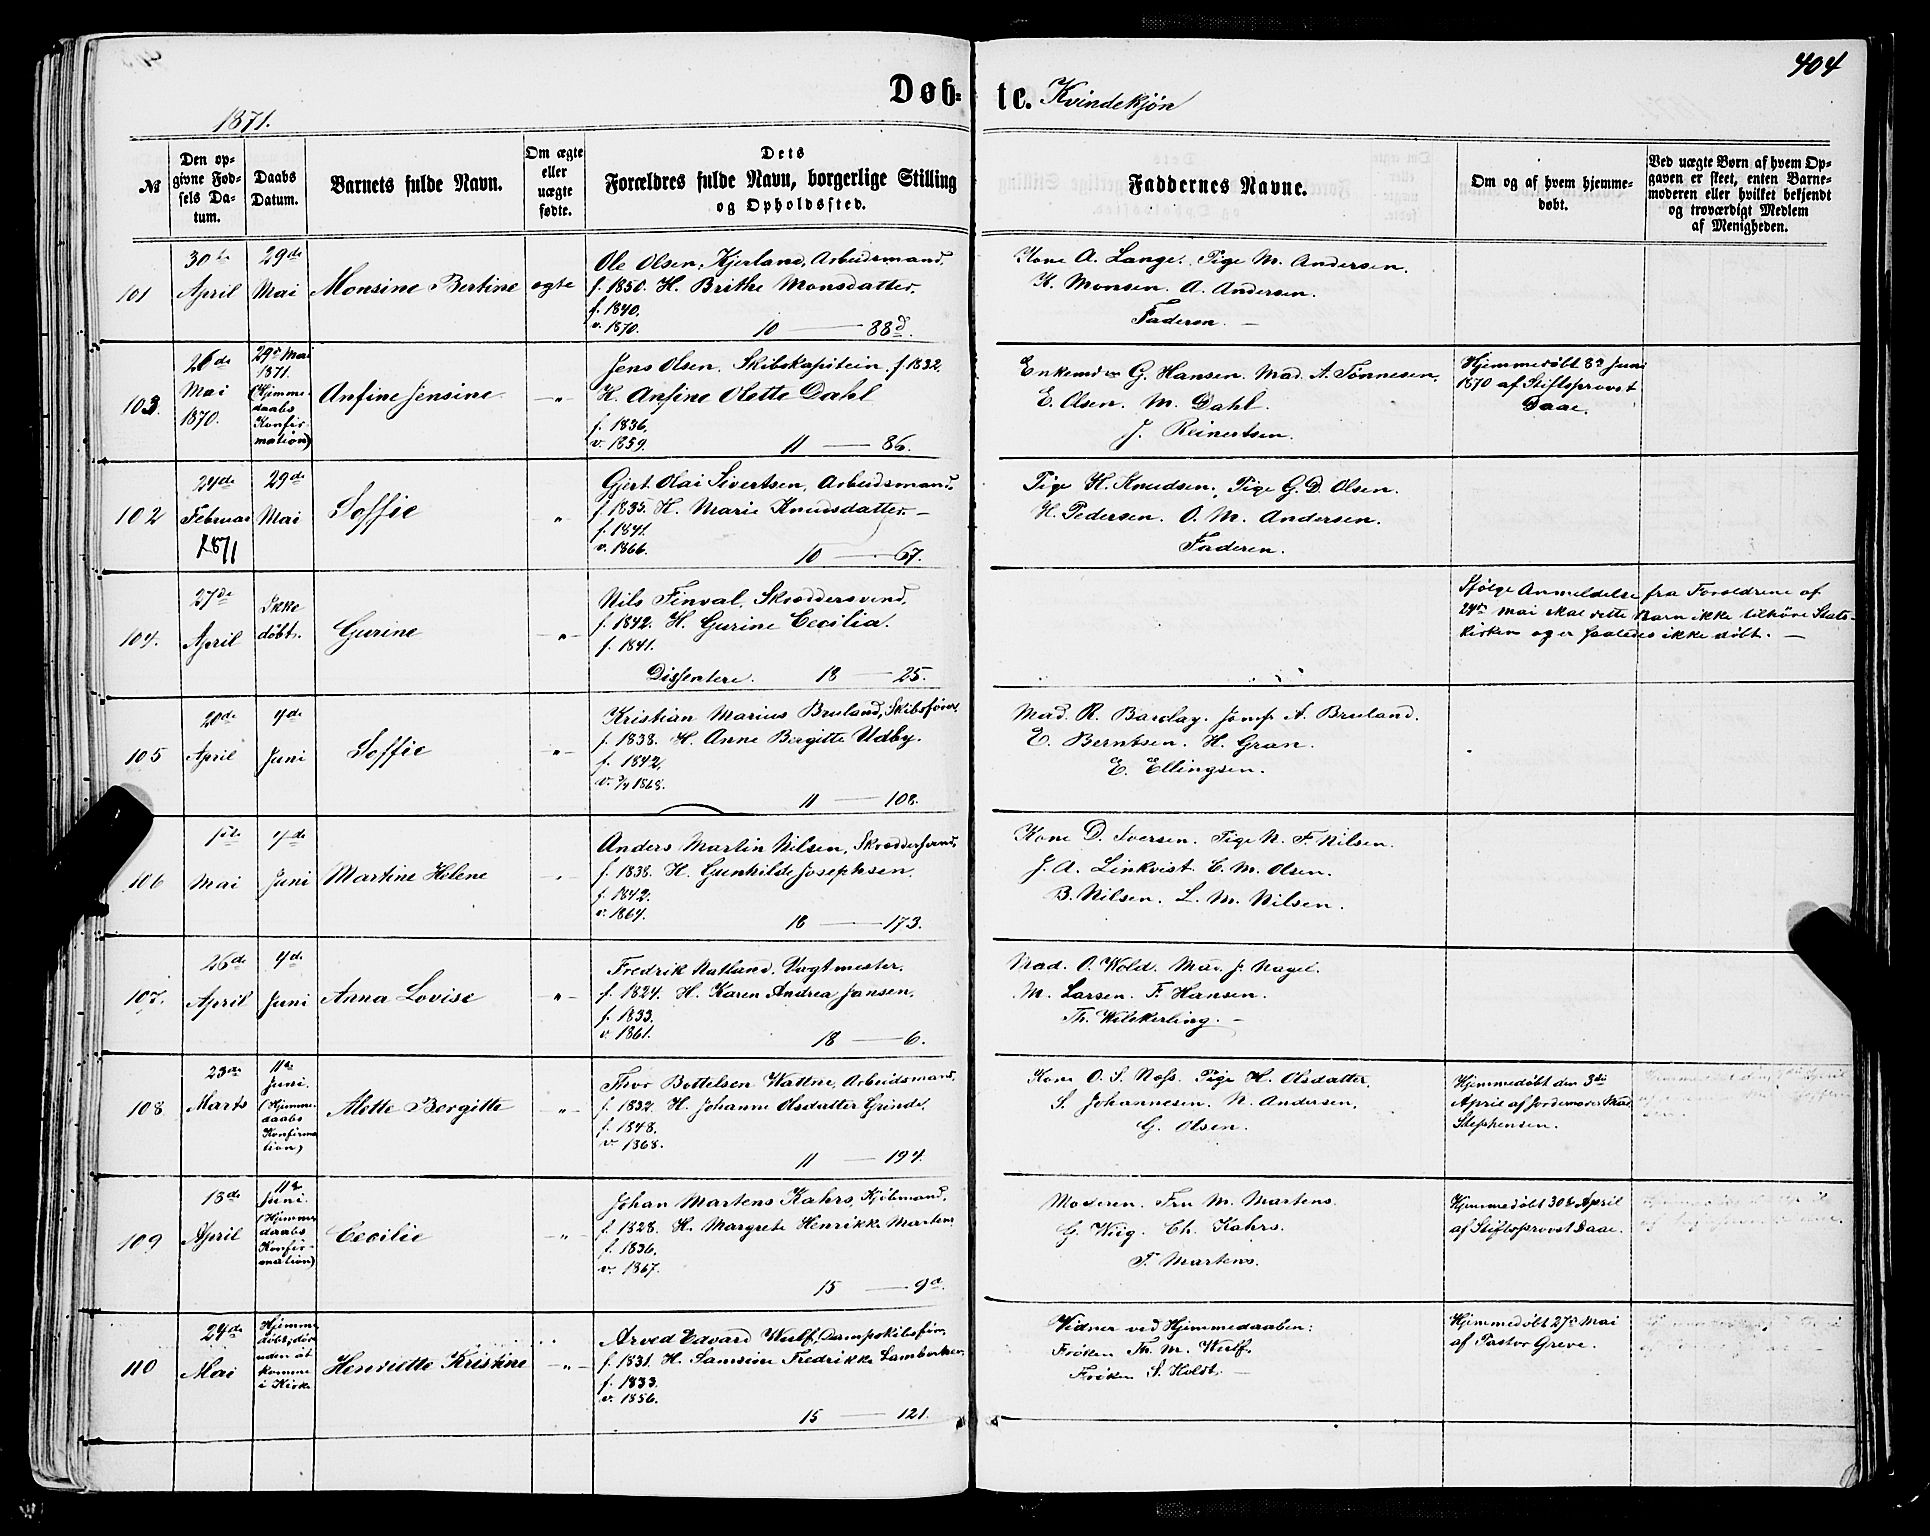 404
Døb- te. Kvindekjøn
1871.
№
Den op-
givne Fød-
sels Da-
tum.
Daabs
Datum.
Barnets fulde Navn.
Om ægte
eller
uægte
fødte.
Dets
Forældres fulde Navn, borgerlige Stilling
og Opholdssted.
Faddernes Navne.
Om og af hvem hjemme-
døbt.
Ved uægte Børn af hvem Op-
gaven er skeet, enten Barne-
moderen eller hvilket bekjendt
og troværdigt Medlem
af Menigheden.
101
30te
April
29de
Mai
Monsine Bertine
ægte
Ole Olsen, Kjerland, Arbeidsmand,
f. 1850. H. Brithe Monsdatter,
f. 1840.
v. 1870. 10 — 88d.
Kone A. Lange. Pige M. Andersen.
K. Monsen. A. Andersen.
Faderen. —
103.
26de
Mai
1870.
29de Mai
1871.
(Hjemme-
daabs
Konfir-
mation)
Anfine Jensine
—"—
Jens Olsen. Skibskapitein. f. 1832.
H. Anfine Olette Dahl
f. 1836.
v. 1859. 11 — 86.
G. Hansen. Mad. A. Tønnesen.
E. Olsen. M. Dahl.
J. Reinertsen.
Hjemmedøbt 8de Juni
1870 af Stiftsprovst
Daae.
102
24de
Februar
1871
29de
Mai
Soffie
"
Gert Olai Sivertsen, Arbeidsmand,
f. 1835. H. Marie Knudsdatter —
f. 1841.
v. 1866. 10 — 67.
Pige H. Knudsen. Pige G. D. Olsen.
H. Pedersen. O. M. Andersen.
Faderen.
104.
27de
April
Ikke
døbt.
Gurine
—"—
Nils Finval, Skræddersvend,
f. 1842. H. Gurine Cecilia.
f. 1841.
Dissentere. 18 — 25.
Ifølge Anmeldelse fra Forældrene af
24de Mai skal dette Barn ikke tilhøre Stats-
kirken og er saaledes ikke døbt. —
105
20de
April
4de
Juni
Soffie
—"—
Kristian Marius Bruland, Skibsfører
f. 1838. H. Anne Bergitte Udby.
f. 1842.
1868.
11 — 108.
Mad. R. Barclay. Jomf. A. Bruland.
E. Berntsen. H. Gran.
E. Ellingsen.
106
1ste
Mai
4de
Juni
Martine Helene
"
Anders Martin Nilsen, Skræddersvend,
f. 1838. H. Gunhilde Josephsen.
f. 1842.
v. 1864. 18 — 173.
Kone D. Iversen. Pige N. F. Nilsen.
J. A. Linkvist. E. M. Olsen.
B. Nilsen. L. M. Nilsen.
107.
26de
April
4de
Juni
Anna Lovise
—"—
Fredrik Natland. Vagtmester.
f. 1824. H. Karen Andrea Jansen.
f. 1833.
v. 1861. 18 — 6.
Mad. O. Wold. Mad. J. Nagel.
M. Larsen. F. Hansen.
Th. Wilckerling. —
108
23de
Marts
11te
Juni.
(Hjemme-
daabs
Konfirma-
tion)
Alette Bergitte
—"—
Thor Bottelsen Wattne, Arbeidsmand,
f. 1832. H. Johanne Olsdatter Grinde.
f. 1848.
v. 1868.
11 — 194.
Kone O. S. Næss. Pige H. Olsdatter.
S. Johannesen. N. Andersen.
G. Olsen.
Hjemmedøbt den 3die
April af Jordemoder Mad
Stephensen.
109
13de
April
11te
Juni.
(Hjemme-
daabs
Konfir-
mation)
Cecilie
—"—
Johan Martens Kahrs, Kjøbmand,
f. 1828. H. Margrete Henrikke Martens
f. 1836.
v. 1867.
15 — 9d.
Moderen. Fru M. Martens.
G. Wiig. Ch. Kahrs.
F. Martens.
Hjemmedøbt 30te April
af Stiftsprovst Daae.
110
24de
Mai
Hjemme-
døbt, død
uden at
komme
i Kirke
Henriette Kristine
—"—
Arved Edvard Wulf, Dampskibsfør.
f. 1831. H. Samsine Fredrikke
f. 1833.
v. 1856.
15 — 121.
Vidner ved Hjemmedaaben:
Frøken Th. M. Wulf.
Frøken S. Holdt. —
Hjemmedøbt 27de Mai
af Pastor Greve.